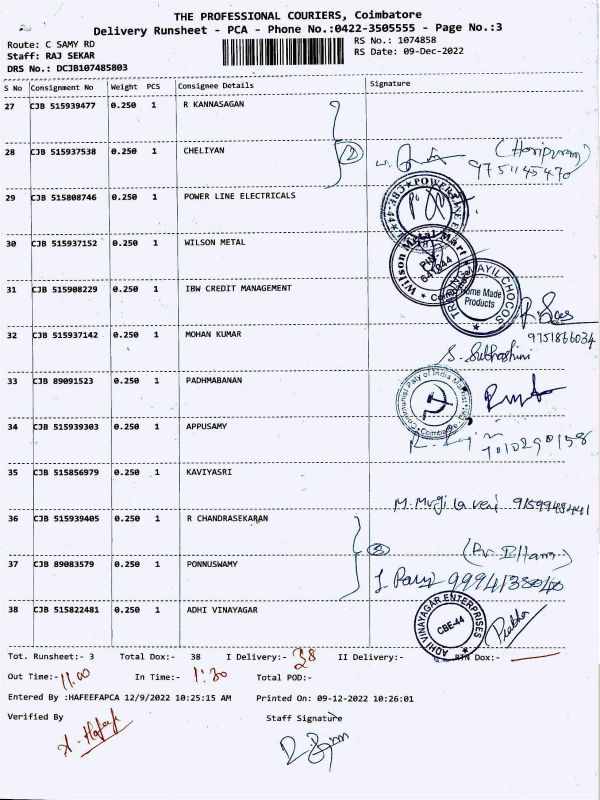 THE PROFESSIONAL COURIERS, Coimbatore
Delivery Runsheet - PCA - Phone No.:0422-3505555 - Page No.:3
Route: C SAMY RD
RS No.: 1074858
Staff: RAJ SEKAR
RS Date: 09-Dec-2022
DRS No.: DCJB107485803
S No Consignment No Weight PCS Consignee Details Signature
27 CJB 515939477 0.250 1 R KANNASAGAN
28 CJB 515937538 0.250 1 CHELIYAN (2) 9751145470
29 CJB 515808746 0.250 1 POWER LINE ELECTRICALS
30 CJB 515937152 0.250 1 WILSON METAL Wilson Metal Mart 641044
31 CJB 515908229 0.250 1 IBW CREDIT MANAGEMENT Home Made Products
9751866034
32 CJB 515937142 0.250 1 MOHAN KUMAR S. Subhashini
33 CJB 89091523 0.250 1 PADHMABANAN
34 CJB 515939303 0.250 1 APPUSAMY 7010290158
35 CJB 515856979 0.250 1 KAVIYASRI
36 CJB 515939405 0.250 1 R CHANDRASEKARAN
37 CJB 89083579 0.250 1 PONNUSWAMY 9994138040
38 CJB 515822481 0.250 1 ADHI VINAYAGAR ADHI VINAYAGAR ENTERPRISES CBE-44 Prabha
Tot. Runsheet:- 3 Total Dox:- 38 I Delivery:- 38 II Delivery:- RTN Dox:-
Out Time:- 11.00 In Time:- 1:30 Total POD:-
Entered By :HAFEEFAPCA 12/9/2022 10:25:15 AM Printed On: 09-12-2022 10:26:01
Verified By Staff Signature